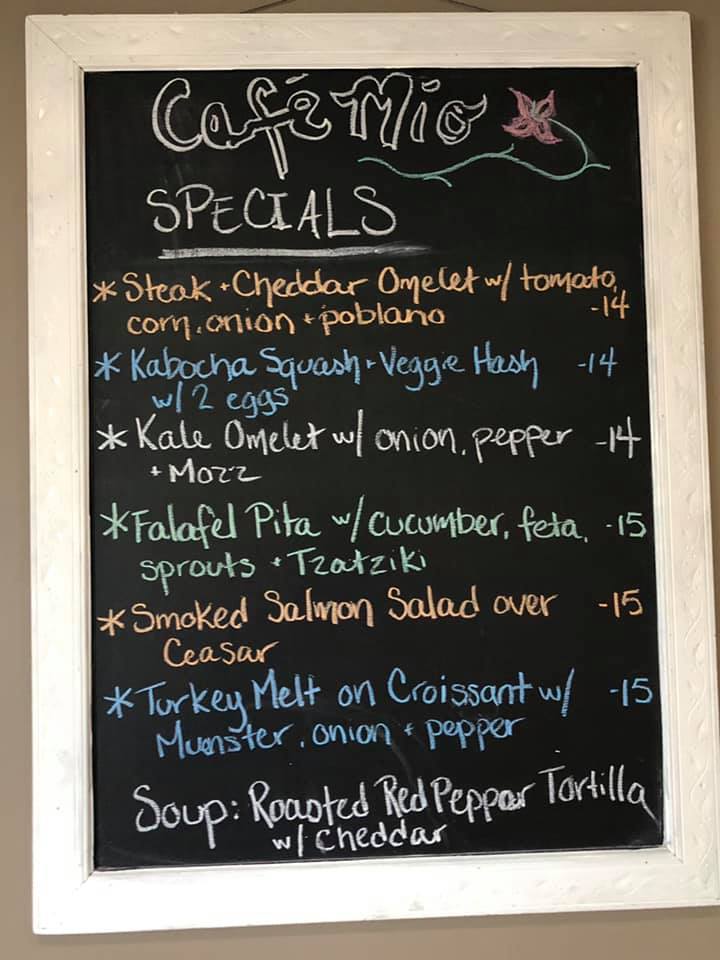 Café Mio
SPECIALS
* Steak + Cheddar Omelet w/ tomato,
corn, onion + poblano -14
* Kabocha Squash + Veggie Hash -14
w/ 2 eggs
* Kale Omelet w/ onion, pepper -14
+ Mozz
* Falafel Pita w/ cucumber, feta, -15
sprouts + Tzatziki
* Smoked Salmon Salad over -15
Ceasar
* Turkey Melt on Croissant w/ -15
Munster, onion + pepper
Soup: Roasted Red Pepper Tortilla
w/ cheddar